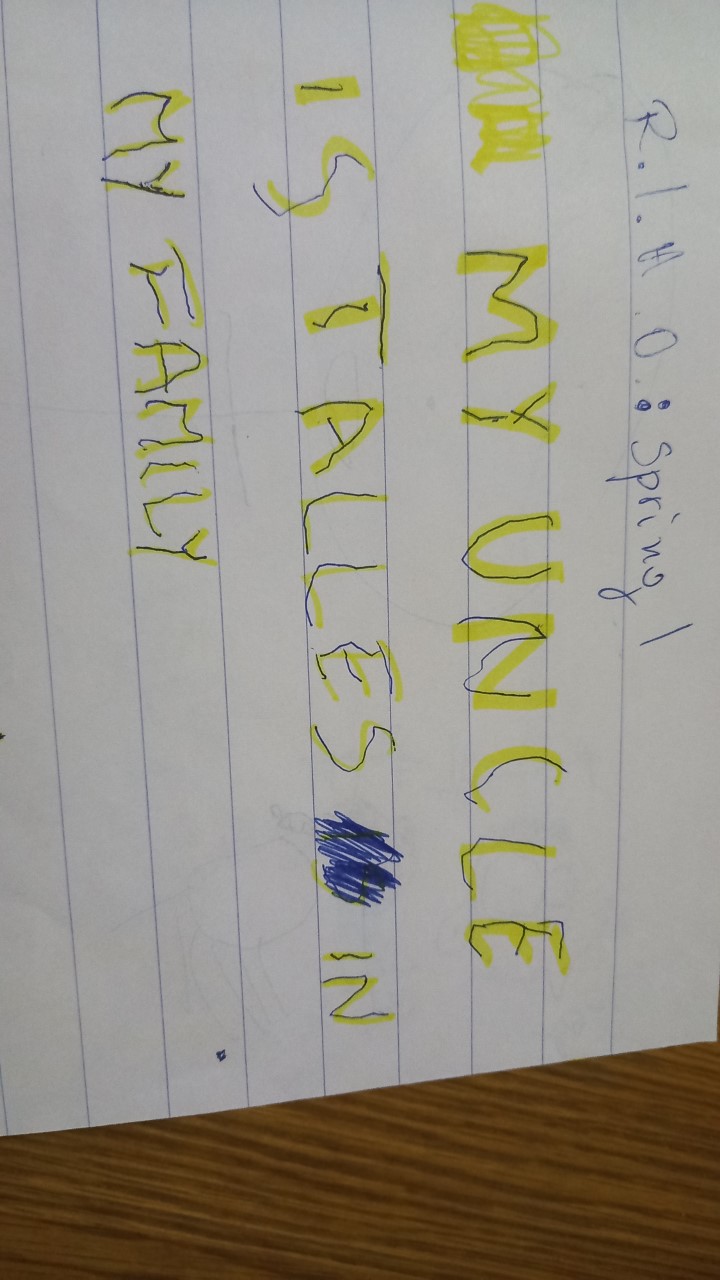 R.I.H.O.: Spring 1
MY UNCLE
IS TALLES IN
MY FAMILY